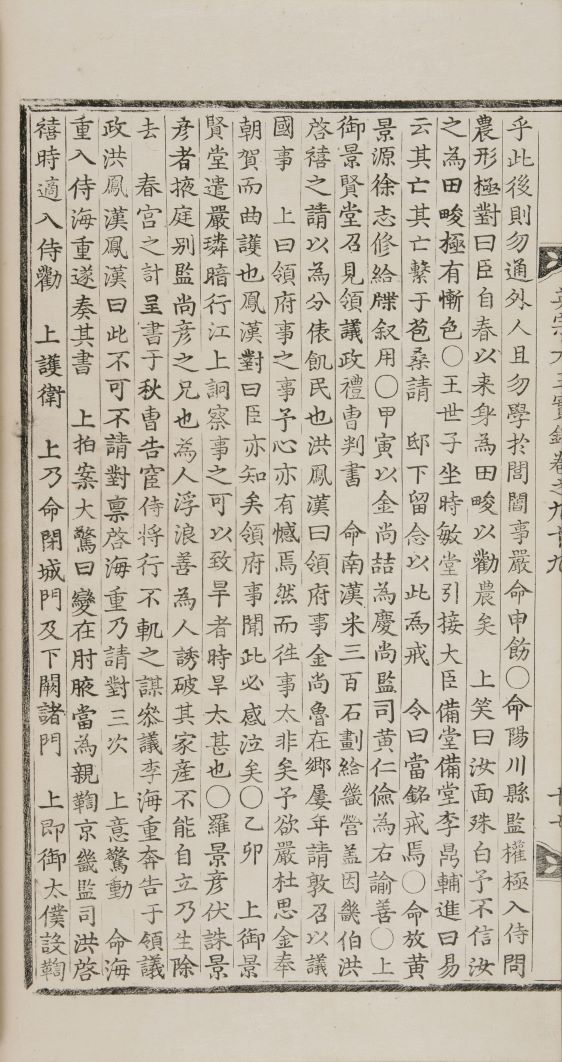 英宗大王實録卷之九十九
乎此後則勿通外人且勿學扵閭閻事嚴命申飭○命陽川縣監權極入侍問
農形極對曰臣自春以来身為田畯以勸農矣　上笑曰汝面殊白予不信汝
之為田畯極有慚色○王世子坐時敏堂引接大臣備堂備堂李鼎輔進曰易
云其亡其亡繫于苞桑請　邸下留念以此為戒　令曰當銘戒焉○命放黄
景源徐志修給牒叙用○甲寅以金尚喆為慶尚監司黄仁儉為右諭善○上
御景賢堂召見領議政禮曹判書　命南漢米三百石劃給畿營盖因畿伯洪
啓禧之請以為分俵飢民也洪鳳漢曰領府事金尚魯在郷屢年請敦召以議
國事　上曰領府事之事予心亦有憾焉然而徃事太非矣予欲嚴杜思金奉
朝賀而曲護也鳳漢對曰臣亦知矣領府事聞此必感泣矣○乙卯　上御景
賢堂遣嚴璘暗行江上詗察事之可以致旱者時旱太甚也○羅景彦伏誅景
彦者掖庭别監尚彦之兄也為人浮浪善為人誘破其家産不能自立乃生除
去　春宫之計呈書于秋曹告宦侍将行不軌之謀叅議李海重奔告于領議
政洪鳳漢鳳漢曰此不可不請對禀啓海重乃請對三次　上意驚動　命海
重入侍海重遂奏其書　上拍案大驚曰變在肘腋當為親鞫京畿監司洪啓
禧時適入侍勸　上護衛　上乃命閉城門及下闕諸門　上即御太僕設鞫